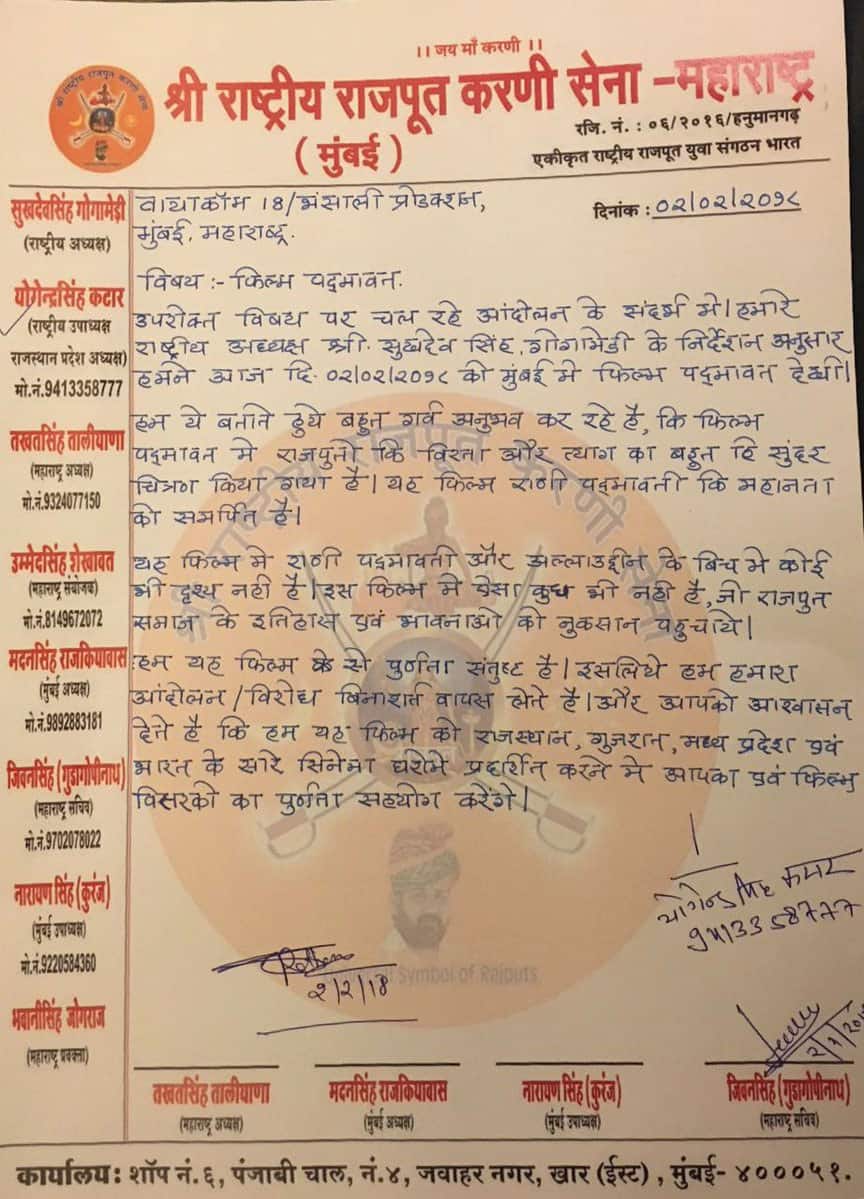 ।। जय माँ करणी ।।
श्री राष्ट्रीय राजपूत करणी सेना -महाराष्ट्र
( मुंबई )
रजि. नं. : ०६/२०१६/हनुमानगढ़
एकीकृत राष्ट्रीय राजपूत युवा संगठन भारत
श्री राष्ट्रीय राजपूत करणी सेना
सुखदेवसिंह गोगामेड़ी
(राष्ट्रीय अध्यक्ष)
योगेन्द्रसिंह कटार
(राष्ट्रीय उपाध्यक्ष
राजस्थान प्रदेश अध्यक्ष)
मो.नं.9413358777
तखतसिंह तालीयाणा
(महाराष्ट्र अध्यक्ष)
मो.नं.9324077150
उम्मेदसिंह शेखावत
(महाराष्ट्र संयोजक)
मो.नं.8149672072
मदनसिंह राजकियावास
(मुंबई अध्यक्ष)
मो.नं.9892883181
जिवनसिंह (गुडागोपीनाथ)
(महाराष्ट्र सचिव)
मो.नं.9702078022
नारायण सिंह (कुरंज)
(मुंबई उपाध्यक्ष)
मो.नं.9220584360
भवानीसिंह जोगराज
(महाराष्ट्र प्रवक्ता)
वायाकॉम 18/भंसाली प्रोडक्शन,
मुंबई, महाराष्ट्र.
दिनांक : ०२/०२/२०१८
विषय :- फिल्म पद्मावत.
उपरोक्त विषय पर चल रहे आंदोलन के संदर्भ मे। हमारे
राष्ट्रीय अध्यक्ष श्री. सुखदेव सिंह, गोगामेडी के निर्देशन अनुसार
हमने आज दि. ०२/०२/२०१८ की मुंबई मे फिल्म पद्मावत देखी।
हम ये बताते हुये बहुत गर्व अनुभव कर रहे है, कि फिल्म
पद्मावत मे राजपुतो कि विरता और त्याग का बहुत हि सुंदर
चित्रण किया गया है। यह फिल्म राणी पद्मावती कि महानता
को समर्पित है।
यह फिल्म मे राणी पद्मावती और अल्लाउद्दीन के बिच मे कोई
भी दृश्य नही है। इस फिल्म मे ऐसा कुछ भी नही है, जो राजपुत
समाज के इतिहास एवं भावनाओ को नुकसान पहुचाये।
हम यह फिल्म से पुर्णता संतुष्ट है। इसलिये हम हमारा
आंदोलन/विरोध बिनाशर्त वापस लेते है। और आपको आश्वासन
देते है कि हम यह फिल्म को राजस्थान, गुजरात, मध्य प्रदेश एवं
भारत के सारे सिनेमा घरोमे प्रदर्शित करने मे आपका एवं फिल्म
वितरको का पुर्णता सहयोग करेंगे।
योगेन्द्र सिंह कटार
9413358777
2/2/18
Symbol of Rajputs
तखतसिंह तालीयाणा
(महाराष्ट्र अध्यक्ष)
मदनसिंह राजकियावास
(मुंबई अध्यक्ष)
नारायण सिंह (कुरंज)
(मुंबई उपाध्यक्ष)
जिवनसिंह (गुडागोपीनाथ)
(महाराष्ट्र सचिव)
कार्यालय: शॉप नं.६, पंजाबी चाल, नं.४, जवाहर नगर, खार (ईस्ट) , मुंबई- ४०००५१.